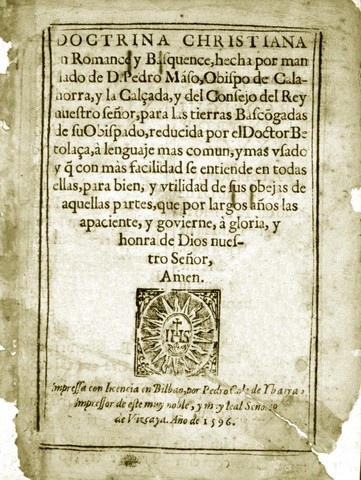 DOCTRINA CHRISTIANA
n Romance y Basquence, hecha por man
dado de D. Pedro Mãso, Obispo de Cala-
horra, y la Calçada, y del Consejo del Rey
nuestro señor, para las tierras Bascõgadas
de su Obispado, reducida por el Doctor Be
tolaça, à lenguaje mas comun, y mas vsado
y q̃ con màs facilidad se entiende en todas
ellas, para bien, y vtilidad de sus obejas de
aquellas partes, que por largos años las
apaciente, y govierne, à gloria, y
honra de Dios nues-
tro Señor,
Amen.
IHS
Impressa con licencia en Bilbao, por Pedro Cole de Ybarra,
impressor de este muy noble, y muy leal Seño.io
de Vizcaya. Año de 1596.